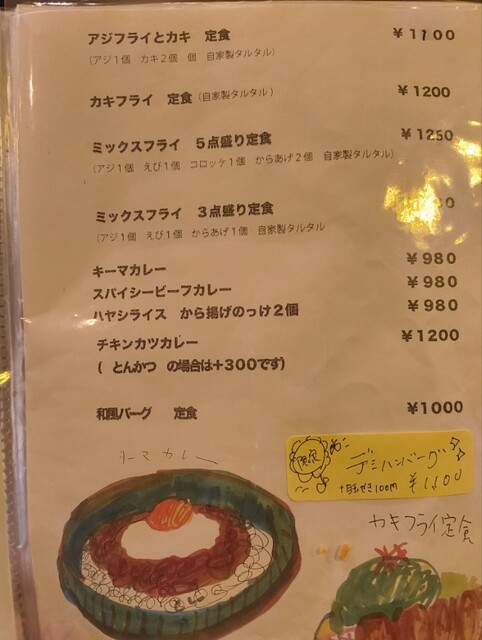 アジフライとカキ 定食 ¥1100
(アジ1個 カキ2個 個 自家製タルタル)
カキフライ 定食(自家製タルタル) ¥1200
ミックスフライ 5点盛り定食 ¥1250
(アジ1個 えび1個 コロッケ1個 からあげ2個 自家製タルタル)
ミックスフライ 3点盛り定食
(アジ1個 えび1個 からあげ1個 自家製タルタル
キーマカレー ¥980
スパイシービーフカレー ¥980
ハヤシライス から揚げのっけ2個 ¥980
チキンカツカレー ¥1200
( とんかつ の場合は+300です)
和風バーグ 定食 ¥1000
デミハンバーグ
¥1,100
キーマカレー
カキフライ定食